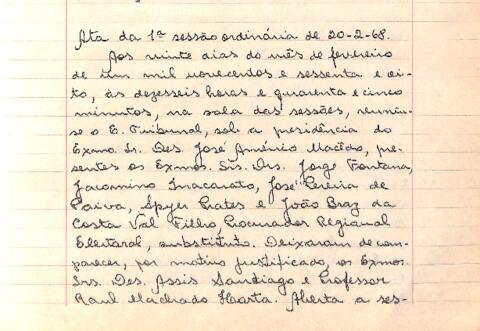 Ata da 1ª sessão ordinária de 20-2-68.
Aos vinte dias do mês de fevereiro
de um mil novecentos e sessenta e oi-
to, às dezesseis horas e quarenta e cinco
minutos, na sala das sessões, reuniu-
se o E. Tribunal, sob a presidência do
Exmo. Sr. Des. José Américo Macêdo, pre-
sentes os Exmos. Srs. Drs. Jorge Fontana,
Jacomino Inacarato, José Pereira de
Paiva, Spyer Prates e João Braz da
Costa Val Filho, Procurador Regional
Eleitoral, substituto. Deixaram de com-
parecer, por motivo justificado, os Exmos.
Srs. Des. Assis Santiago e Professor
Raul Machado Horta. Aberta a ses-